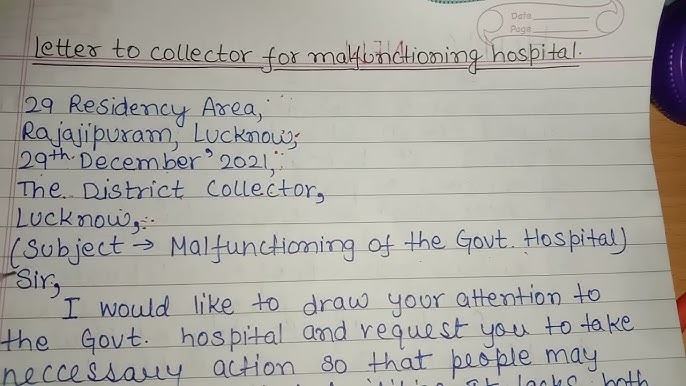 Date
Page
Letter to collector for malfunctioning hospital.
29 Residency Area,
Rajajipuram, Lucknow,
29th December' 2021,
The District Collector,
Lucknow,
(Subject → Malfunctioning of the Govt. Hospital)
Sir,
I would like to draw your attention to
the Govt. hospital and request you to take
neccessary action so that people may
lacks both